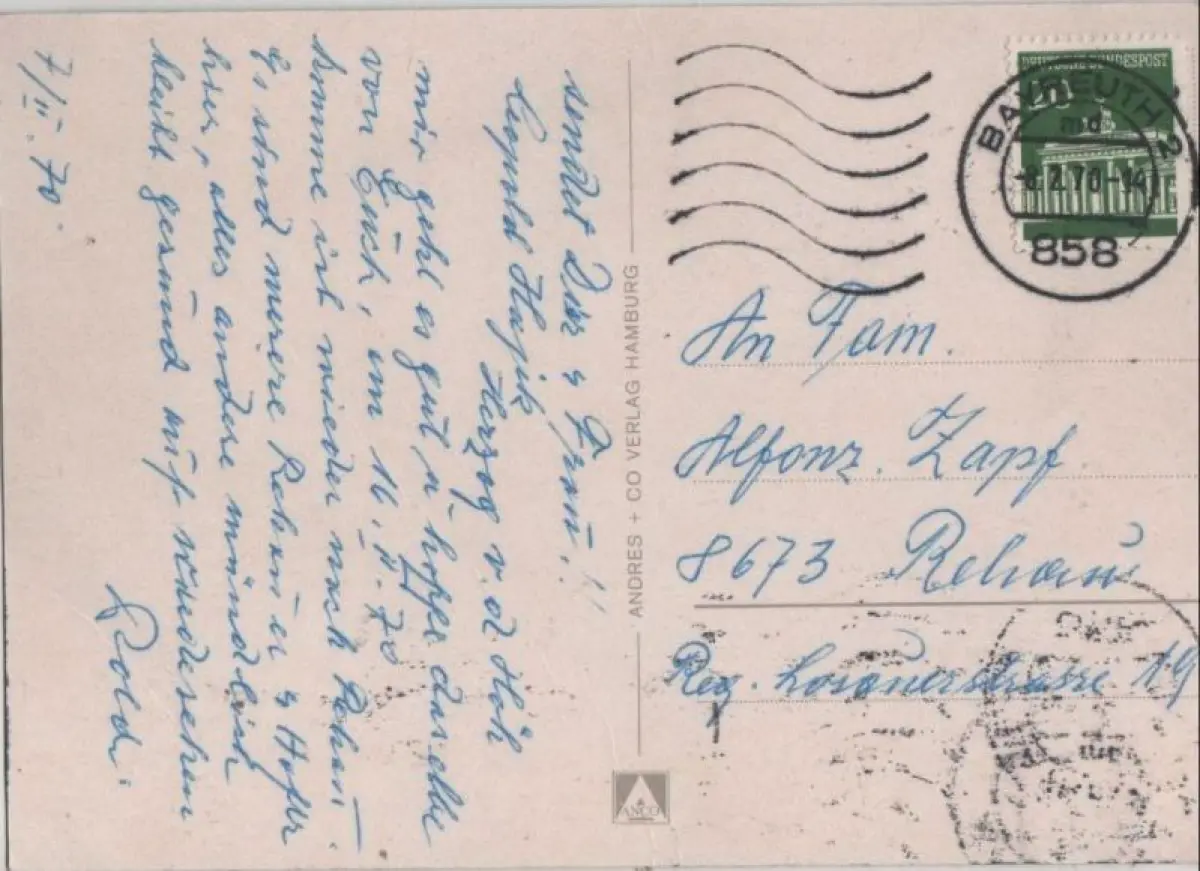 7/II. 70.
sendet Dir & Frau!!
Leopold Hajek
Herzog v. d. Höh
mir geht es gut u. hoffe dasselbe
von Euch, am 16. II. 70
komme ich wieder nach Rehau.
Es sind mehrere Rehauer & Hofer
hier, alles andere mündlich
bleibt gesund auf wiedersehen
Pold.
ANDRES + CO VERLAG HAMBURG
ANCO
DEUTSCHE BUNDESPOST
20
BAYREUTH 2
md
-8.2.70-14
858
An Fam.
Alfonz. Zapf
8673 Rehau
Reg. Losauerstrasse 19